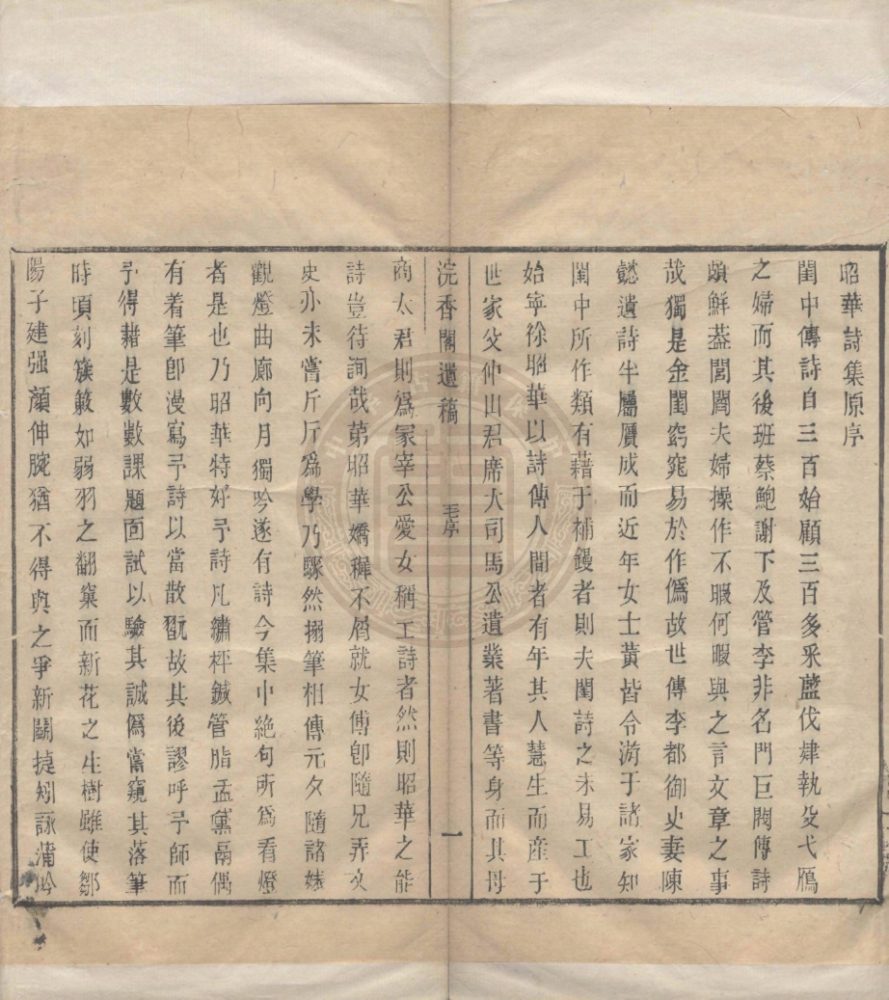 昭華詩集原序
閨中傳詩自三百始顧三百多采藍伐肄執殳弋鴈
之婦而其後班蔡鮑謝下及管李非名門巨閥傳詩
頗鮮葢閭閻夫婦操作不暇何暇與之言文章之事
哉獨是金閨窈窕易於作僞故世傳李都御史妻陳
懿遺詩半屬贋成而近年女士黃皆令游于諸家知
閨中所作類有藉于補鏝者則夫閨詩之未易工也
始寧徐昭華以詩傳人間者有年其人慧生而產于
世家父仲山君席大司馬公遺業著書等身而其母
浣香閣遺稿
毛序
一
商太君則爲冢宰公愛女稱工詩者然則昭華之能
詩豈待詢哉第昭華嬌穉不屑就女傅卽隨兄弄文
史亦未嘗斤斤爲學乃驟然搦筆相傳元夕隨諸姊
觀燈曲廊向月獨吟遂有詩今集中絕句所爲看燈
者是也乃昭華特好予詩凡繡枰鍼管脂盂黛鬲偶
有着筆卽漫寫予詩以當散翫故其後謬呼予師而
予得藉是數數課題面試以驗其誠僞嘗窺其落筆
時頃刻簇簌如弱羽之翻窠而新花之生樹雖使鄒
陽子建强顏伸腕猶不得與之爭新鬭捷矧詠蒲吟